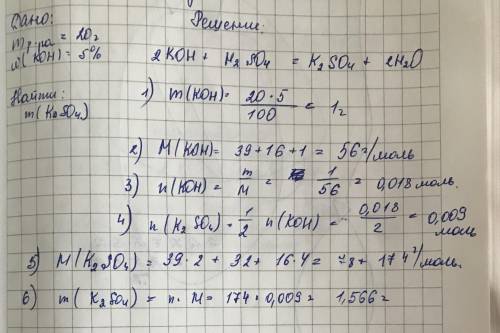 Дано:
m р-ра = 20г
ω(KOH) = 5%
Найти:
m(K2SO4)
Решение:
2KOH + H2SO4 = K2SO4 + 2H2O
1) m(KOH) = 20·5 / 100 = 1г
2) M(KOH) = 39+16+1 = 56 г/моль
3) n(KOH) = m/M = 1/56 = 0,018 моль.
4) n(K2SO4) = 1/2 n(KOH) = 0,018/2 = 0,009 моль
5) M(K2SO4) = 39·2 + 32 + 16·4 = 78+ 174 г/моль.
6) m(K2SO4) = n·M = 174·0,009 = 1,566г